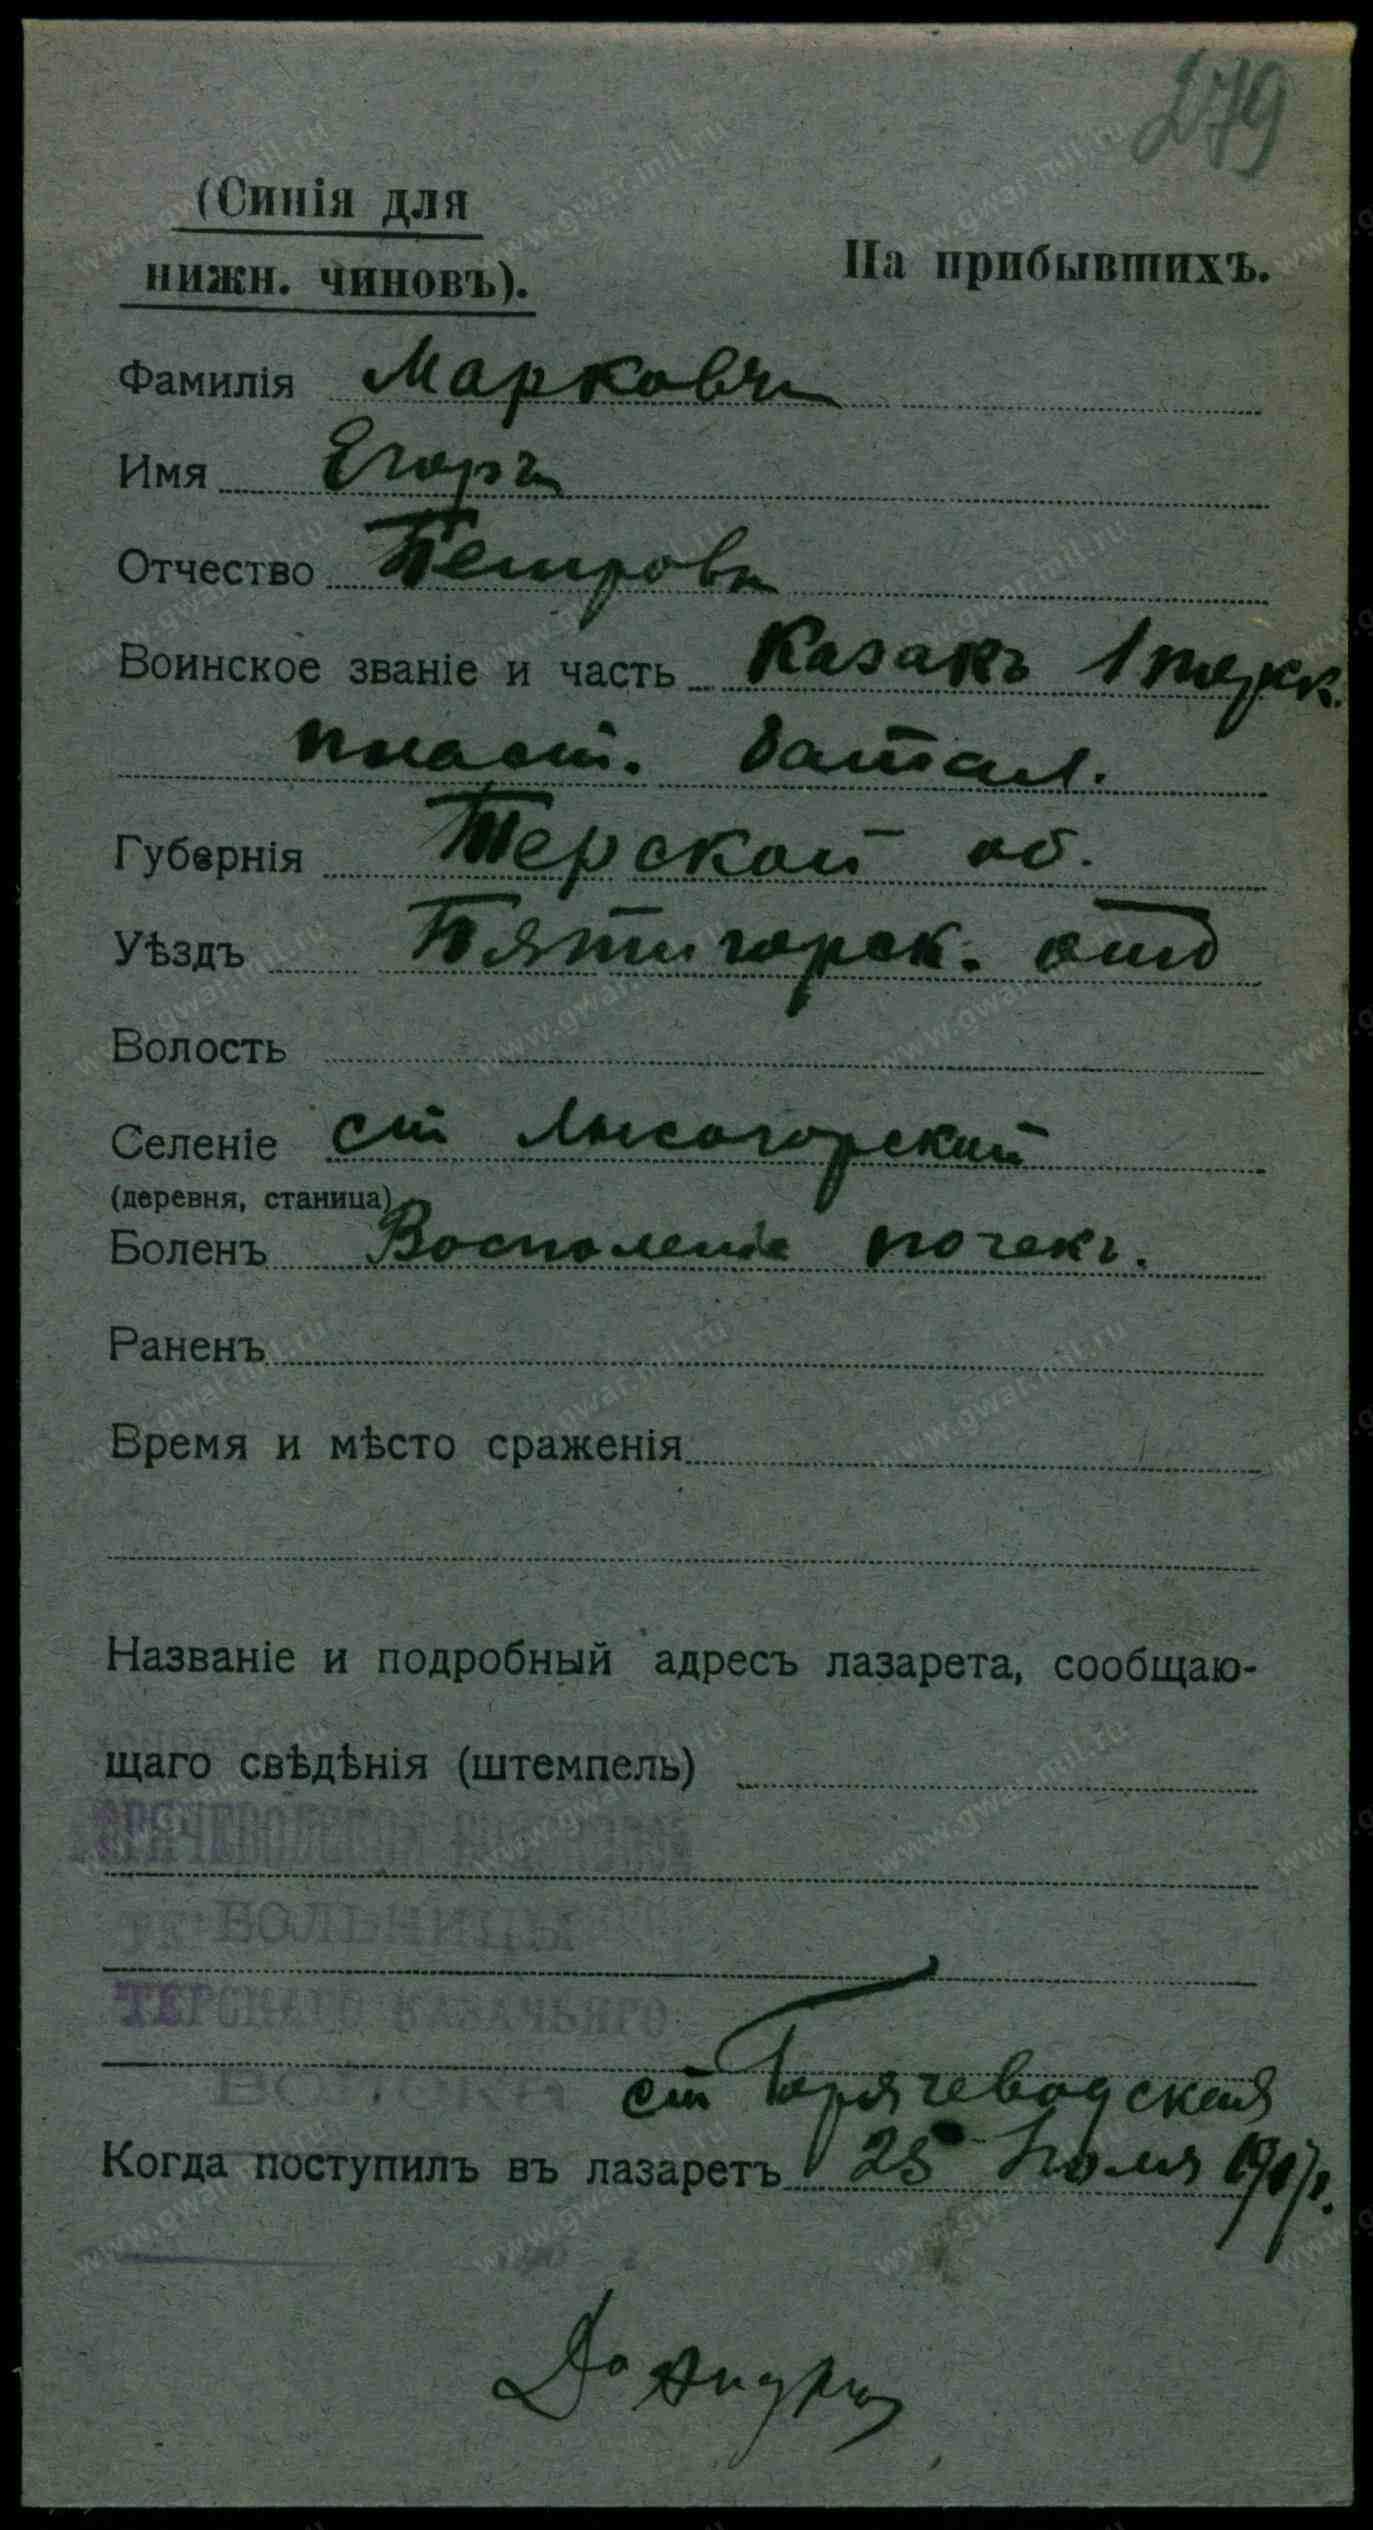 279
(Синія для
нижн. чиновъ).
На прибывшихъ.
Фамилія Марковъ
Имя Егоръ
Отчество Петровъ
Воинское званіе и часть Казакъ 1 терск.
пласт. батал.
Губернія Терской об.
Уѣздъ Пятигорск. отд
Волость
Селеніе ст Лысогорский
(деревня, станица)
Боленъ Воспаленіе почекъ.
Раненъ
Время и мѣсто сраженія
Названіе и подробный адресъ лазарета, сообщаю-
щаго свѣдѣнія (штемпель)
БОЛЬНИЦЫ
ТЕРСКАГО КАЗАЧЬЯГО
ВОЙСКА ст Горячеводская
Когда поступилъ въ лазаретъ 25 Іюля 1917г.
www.gwar.mil.ru